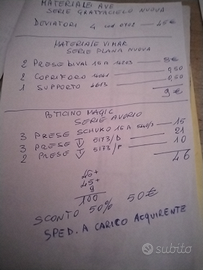 MATERIALE AVE
SERIE GRATTACIELO NUOVA
DEVIATORI 45€
MATERIALE VIMAR
SERIE PLANA NUOVA
2 PRESE BIVAL 10A 5€
2 COPRIFORO
1 SUPPORTO
9€
BTICINO MAGIC
SERIE AVORIO
3 PRESE SCHUKO 16A 15
3 PRESE 5173/D 21
2 PRESE 10
46
46+
45+
9
100
SCONTO 50% 50€
SPED. A CARICO ACQUIRENTE
subito